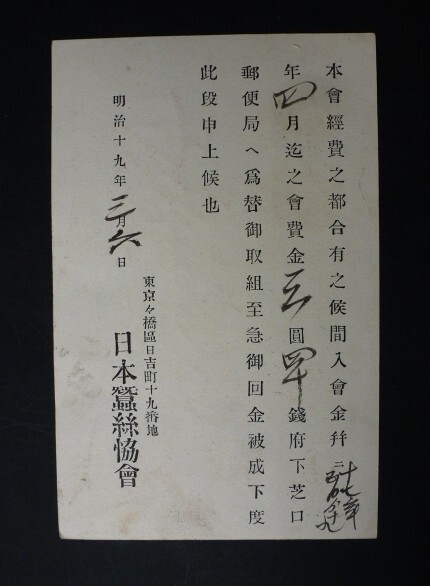 本會經費之都合有之候間入會金幷ニ十七年
年四月迄之會費金五圓四十錢府下芝口
郵便局ヘ爲替御取組至急御回金被成下度
此段申上候也
明治十九年三月六日
東京々橋區日吉町十九番地
日本蠶絲恊會